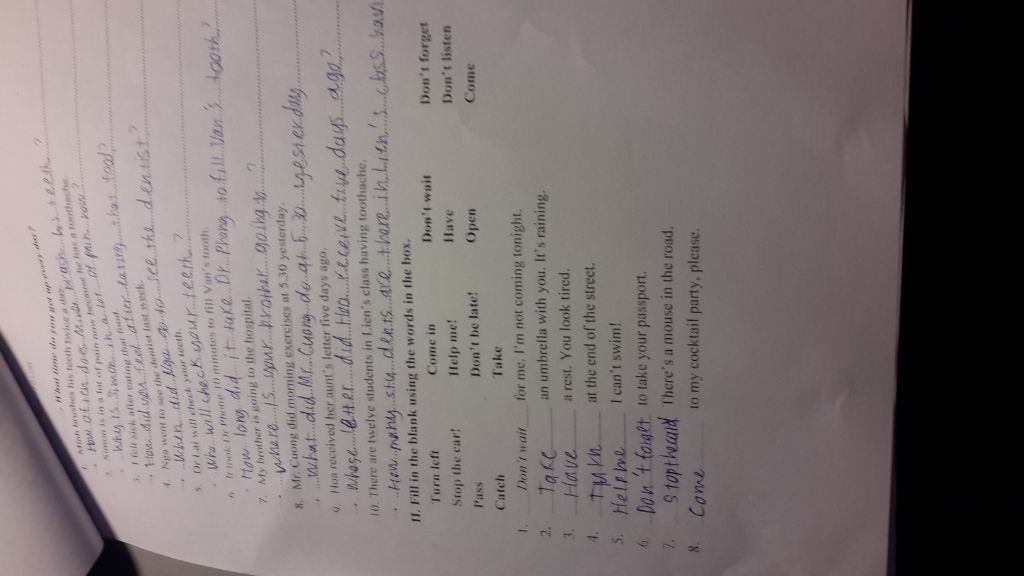 What time do you get up every day?
Minh brushes his teeth twice a day.
How often does Minh brash his teeth ?
2. Simon is in a lot of pain now because he has a toothache.
Why is Simon in a lot of pain now?
3. I felt sick after eating that food.
How did you feel after eating that food?
4. Nga went to see the dentist last week.
→ When did Nga go to see the dentist ?
5. Dr Lai will check your teeth.
Who will check your teeth ?
6. It took Dr Phong 10 minutes to fill Van's tooth.
How long did it take Dr. Phong to fill Van's tooth
7. My brother is going to the hospital.
→ Where is your brother going to ?
8. Mr. Cuong did morning exercises at 5.30 yesterday.
→ What did Mr. Cuong do at 5.30
9. Hoa received her aunt's letter five days ago.
→ Whose letter did Hoa receive five days ago?
10. There are twelve students in Lien's class having toothache.
→ How many students are there in Lien's class
II. Fill in the blank using the words in the box.
Turn left Come in Don't wait Don't forget
Stop the car! Help me! Have Don't listen
Pass Don't be late! Open Come
Catch Take
1. Don't wait for me. I'm not coming tonight.
2. Take an umbrella with you. It's raining.
3. Have a rest. You look tired.
4. at the end of the street.
5. Help me I can't swim!
6. Don't forget to take your passport.
7. There's a mouse in the road.
8. Come to my cocktail party, please.